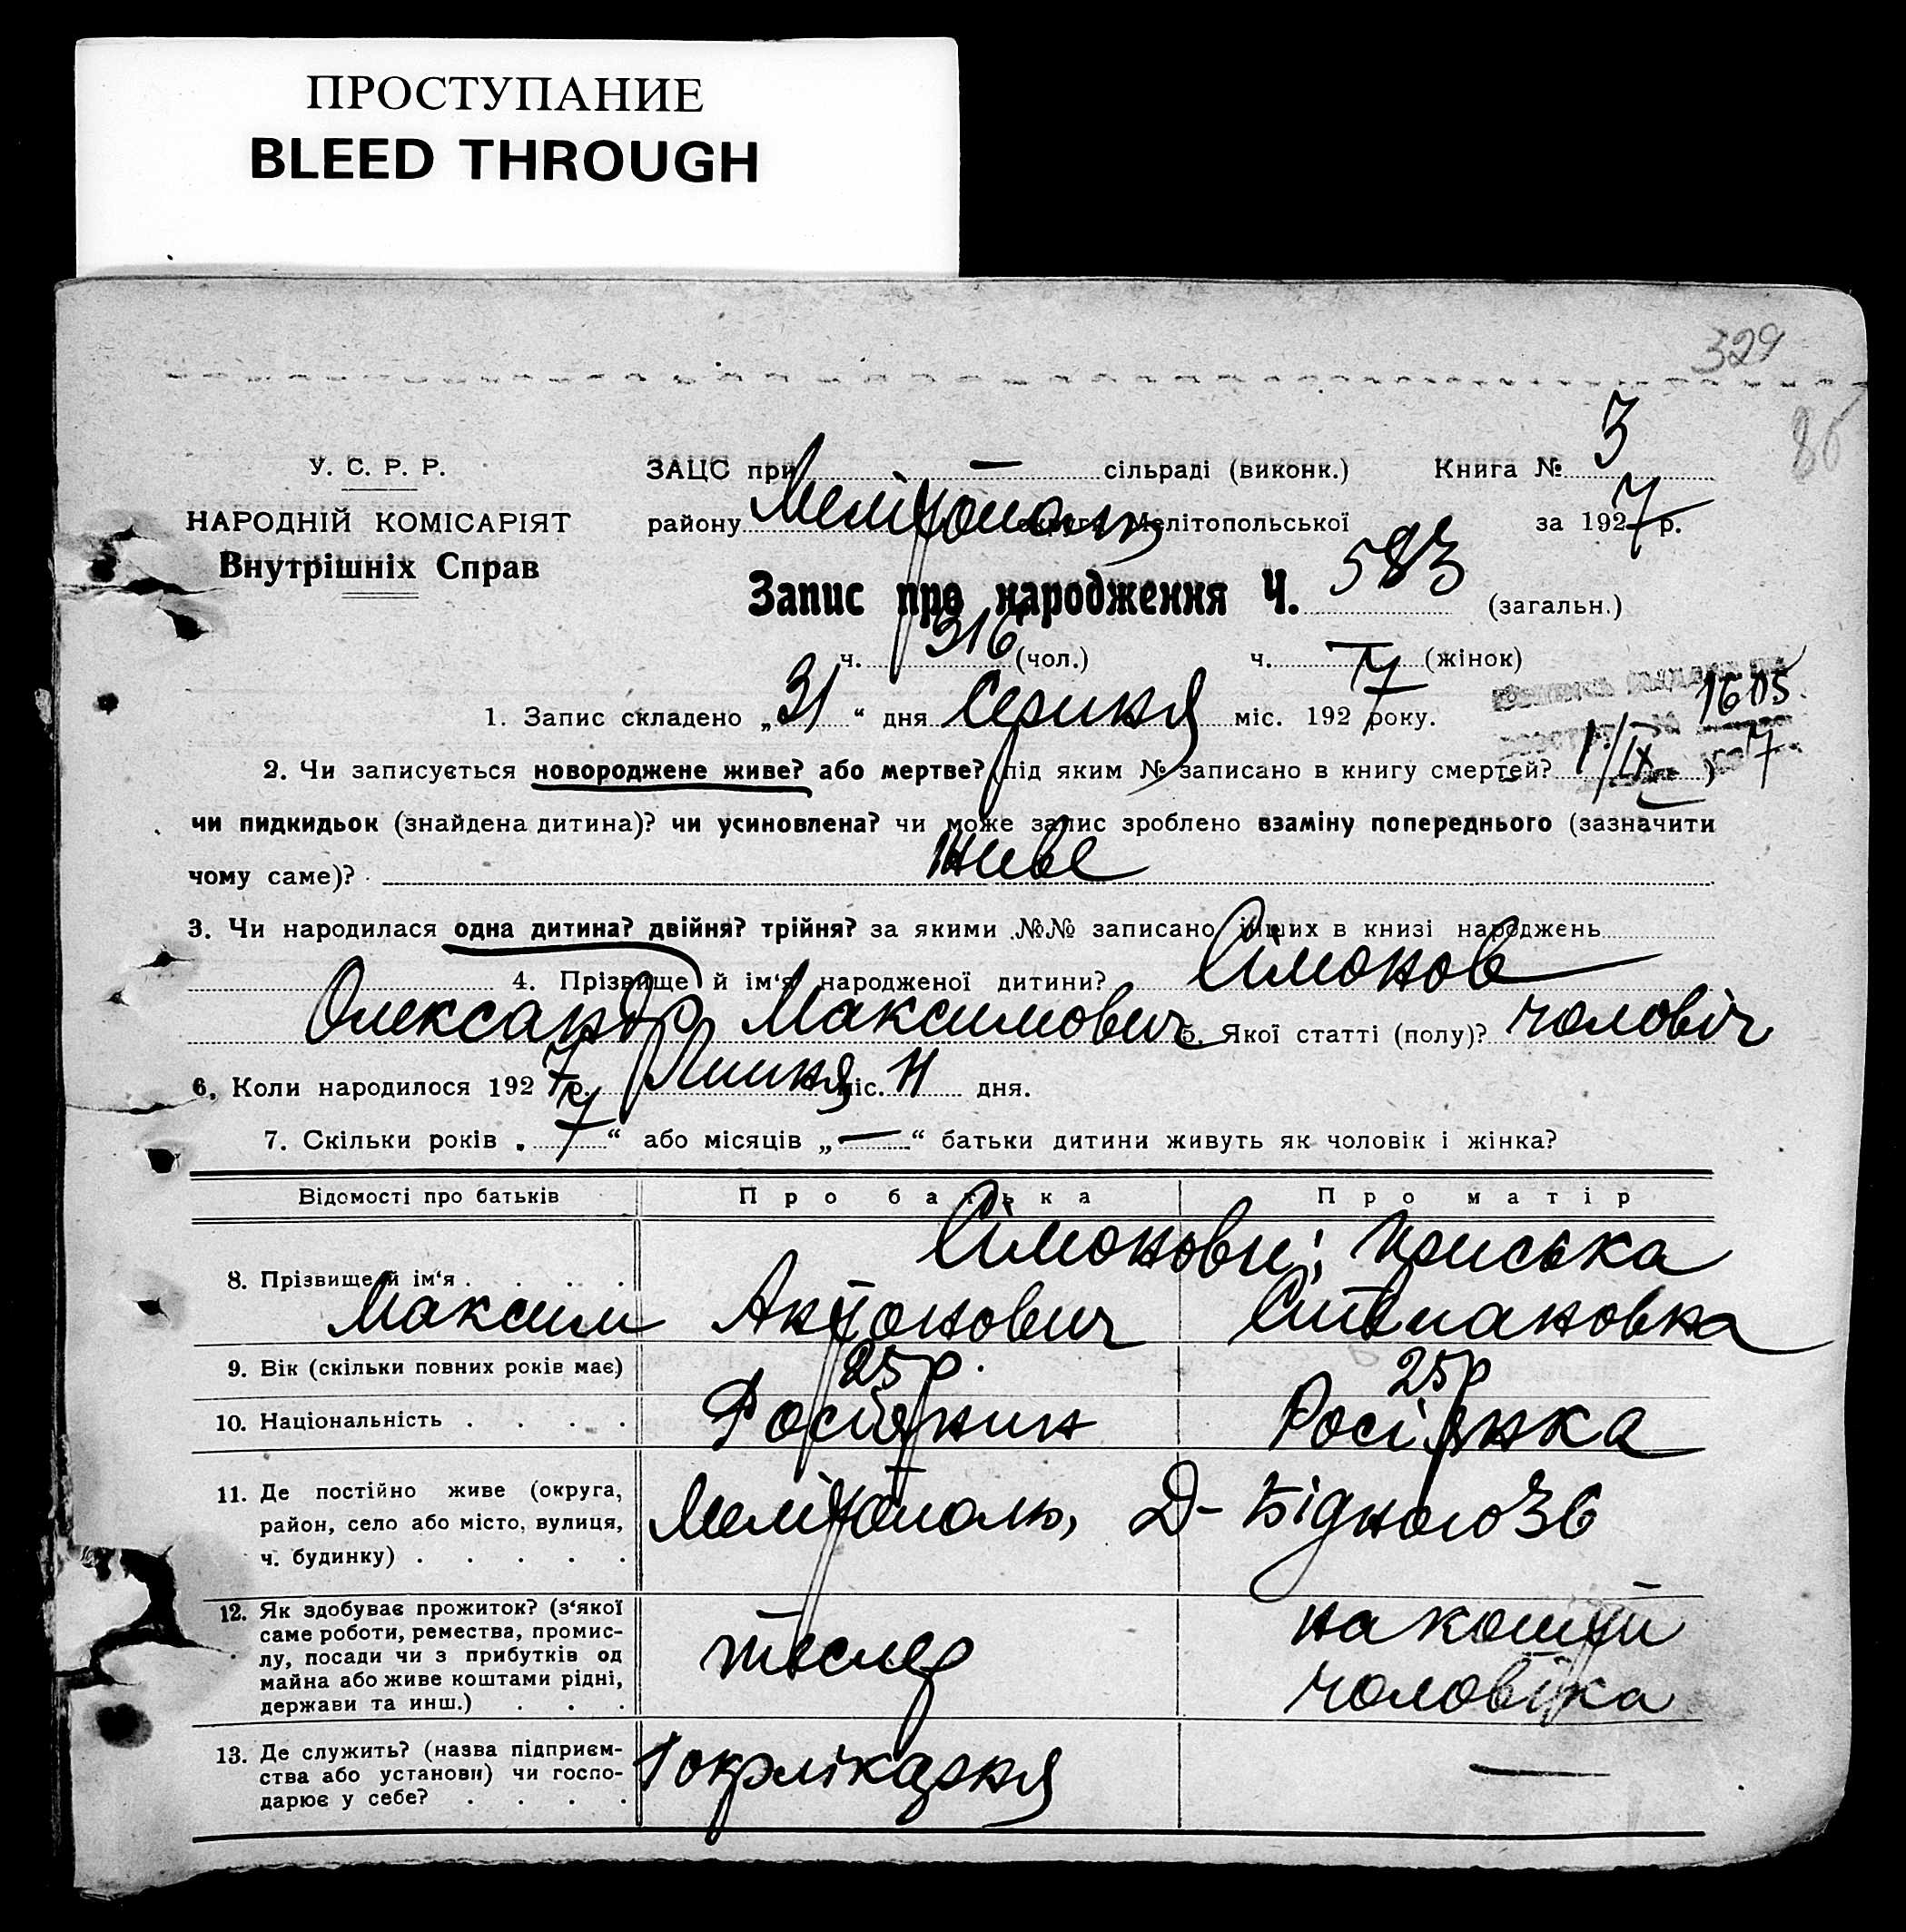 ПРОСТУПАНИЕ
BLEED THROUGH
329
86
У. С. Р. Р.
НАРОДНІЙ КОМІСАРІЯТ
Внутрішніх Справ
ЗАЦС при — сільраді (виконк.) Книга № 3
району Мелітополь округи Мелітопольської за 1927 р.
Запис про народження Ч. 583 (загальн.)
ч. 316 (чол.) ч. — (жінок)
1. Запис складено „31“ дня Серпня міс. 1927 року.
1605
1/IX 7
2. Чи записується новороджене живе? або мертве? (під яким № записано в книгу смертей? )
чи пидкидьок (знайдена дитина)? чи усиновлена? чи може запис зроблено взаміну попереднього (зазначити
чому саме)? живе
3. Чи народилася одна дитина? двійня? трійня? за якими №№ записано інших в книзі народжень
4. Прізвище й ім‘я народженої дитини? Сімонов
Олександр Максимович 5. Якої статті (полу)? чоловіч
6. Коли народилося 1927 р. Липня міс. 11 дня.
7. Скільки років „7“ або місяців „—“ батьки дитини живуть як чоловік і жінка?
Відомості про батьків Про батька Про матір
8. Прізвище й ім‘я . . . . Сімонови; Приська
Максим Антонович Степановна
9. Вік (скільки повних років має) 25 р. 25 р
10. Національність . . . . Росіянин Росіянка
11. Де постійно живе (округа,
район, село або місто, вулиця,
ч. будинку) . . . . .
Мелітополь, Д-Бідного 36
12. Як здобуває прожиток? (з‘якої
саме роботи, ремества, промис-
лу, посади чи з прибутків од
майна або живе коштами рідні,
держави та инш.) . . .
тесляр
на кошти
чоловіка
13. Де служить? (назва підприєм-
ства або установи) чи госпо-
дарює у себе? . . . .
—